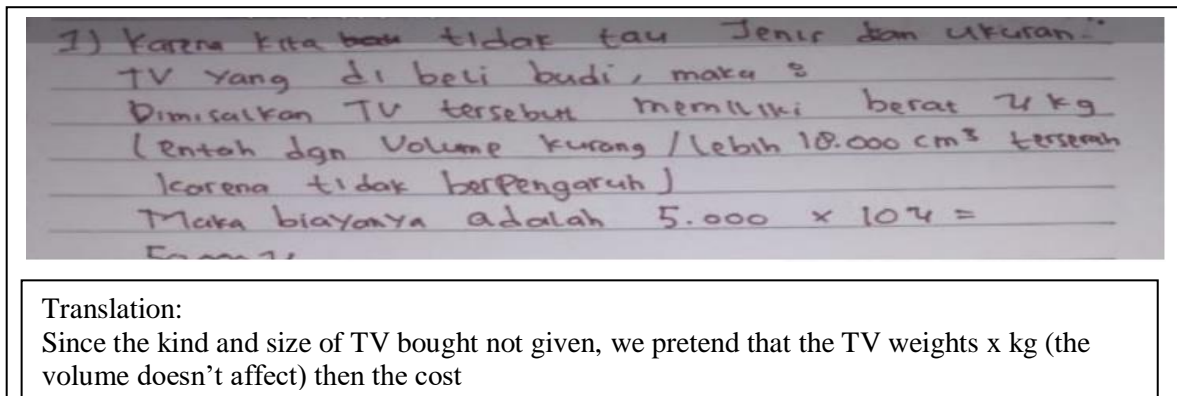 1) Karena kita tidak tau Jenis dan ukuran
TV yang di beli budi, maka :
Dimisalkan TV tersebut memiliki berat x kg
(entah dgn Volume kurang / lebih 10.000 cm³ terserah
karena tidak berpengaruh)
Maka biayanya adalah 5.000 × 10x =
Translation:
Since the kind and size of TV bought not given, we pretend that the TV weights x kg (the
volume doesn't affect) then the cost